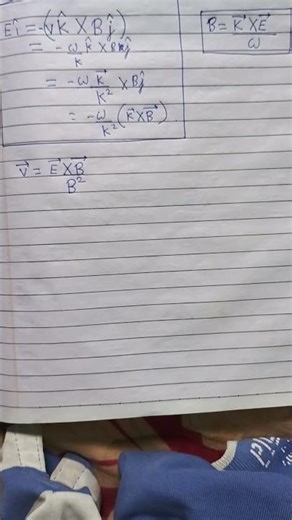 Eî = -(vk̂ × Bĵ)
= -ω/k k̂ × Bĵ
= -ω k⃗/k² × Bĵ
= -ω/k² (k⃗ × B⃗)
B = K⃗ × E⃗ / ω
v⃗ = E⃗ × B⃗ / B²